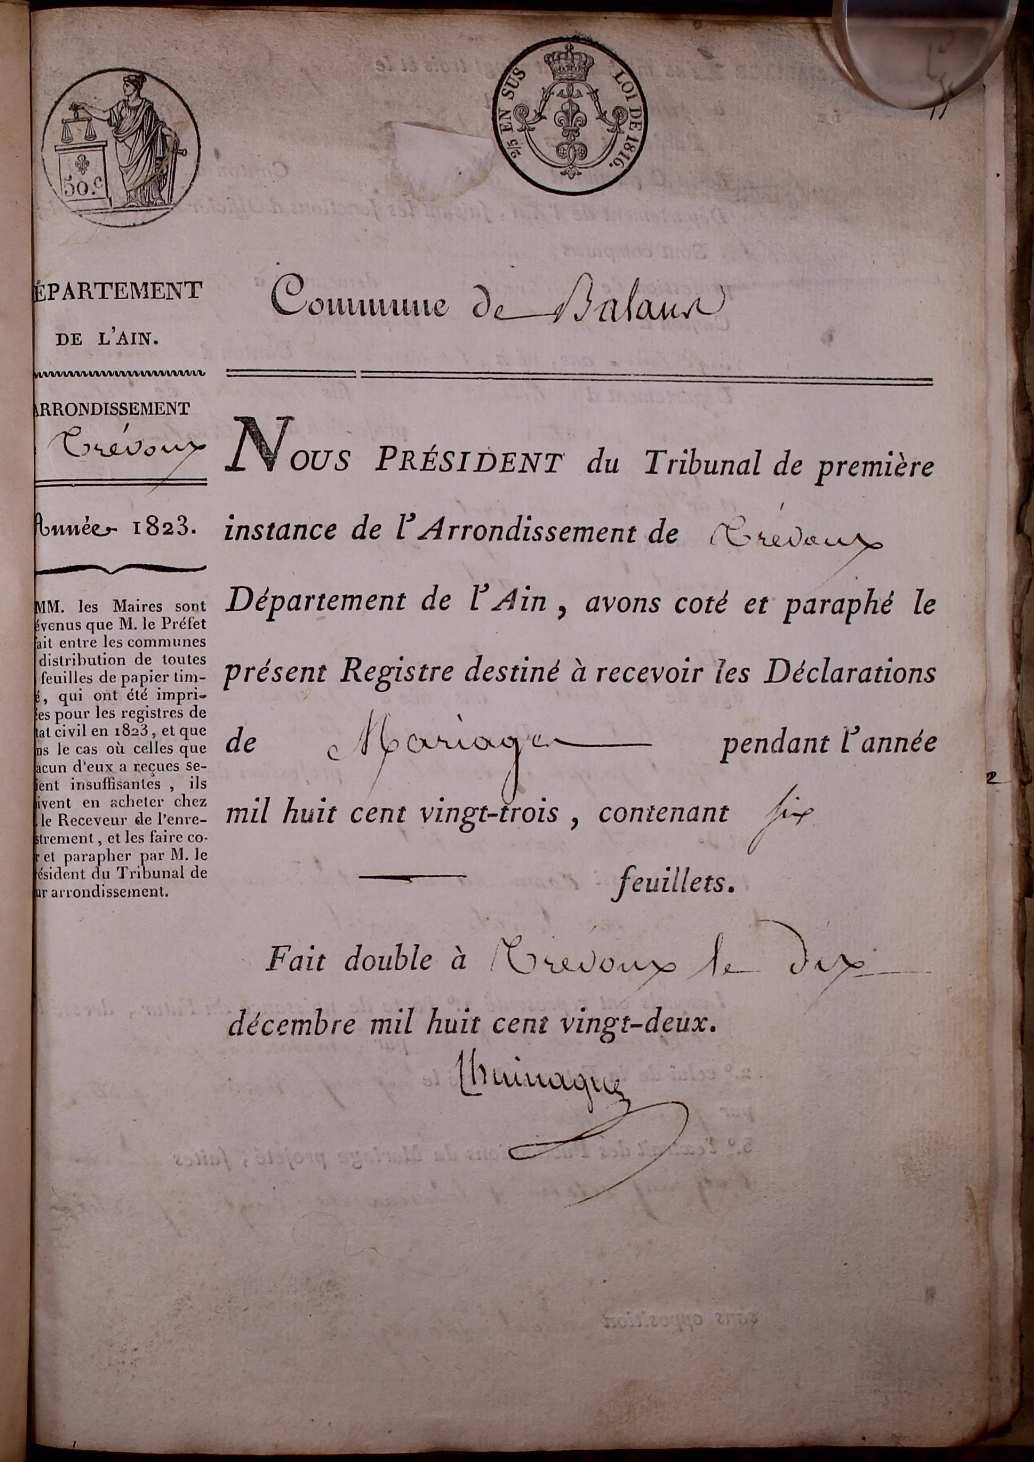 50.c
2/5 EN SUS
LOI DE 1816.
ÉPARTEMENT
DE L'AIN.
ARRONDISSEMENT
Trévoux
Année 1823.
MM. les Maires sont
évenus que M. le Préfet
fait entre les communes
distribution de toutes
feuilles de papier tim-
é, qui ont été impri-
es pour les registres de
tat civil en 1823, et que
ns le cas où celles que
acun d'eux a reçues se-
ient insuffisantes, ils
ivent en acheter chez
le Receveur de l'enre-
strement, et les faire co-
r et parapher par M. le
ésident du Tribunal de
ur arrondissement.
Commune de Balans
NOUS PRÉSIDENT du Tribunal de première
instance de l'Arrondissement de Trévoux
Département de l'Ain, avons coté et paraphé le
présent Registre destiné à recevoir les Déclarations
de Mariage pendant l'année
mil huit cent vingt-trois, contenant six
feuillets.
Fait double à Trévoux le dix
décembre mil huit cent vingt-deux.
2